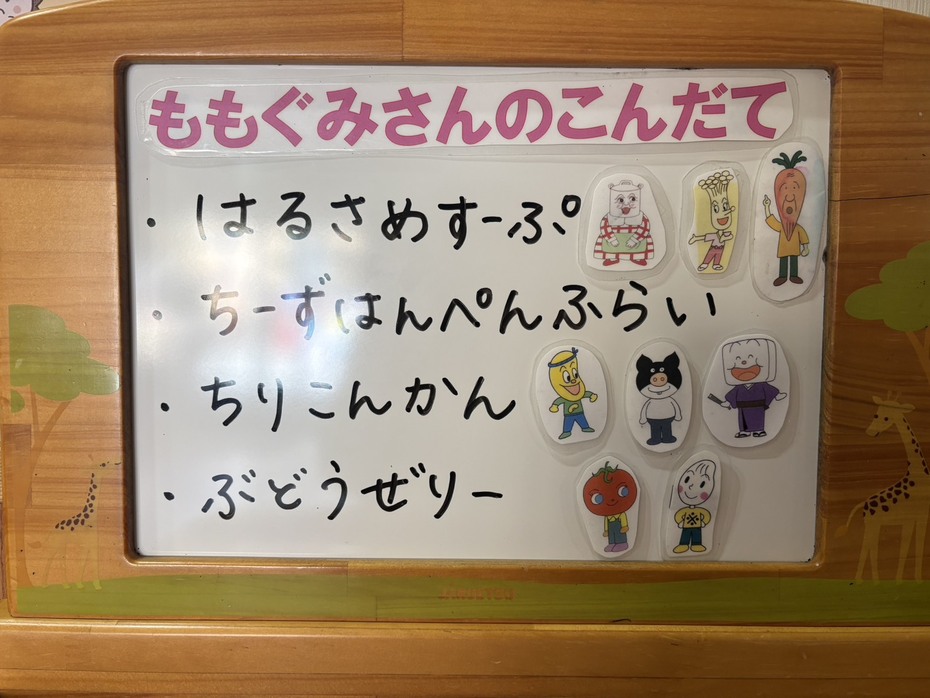 ももぐみさんのこんだて
・はるさめすーぷ
・ちーずはんぺんふらい
・ちりこんかん
・ぶどうぜりー